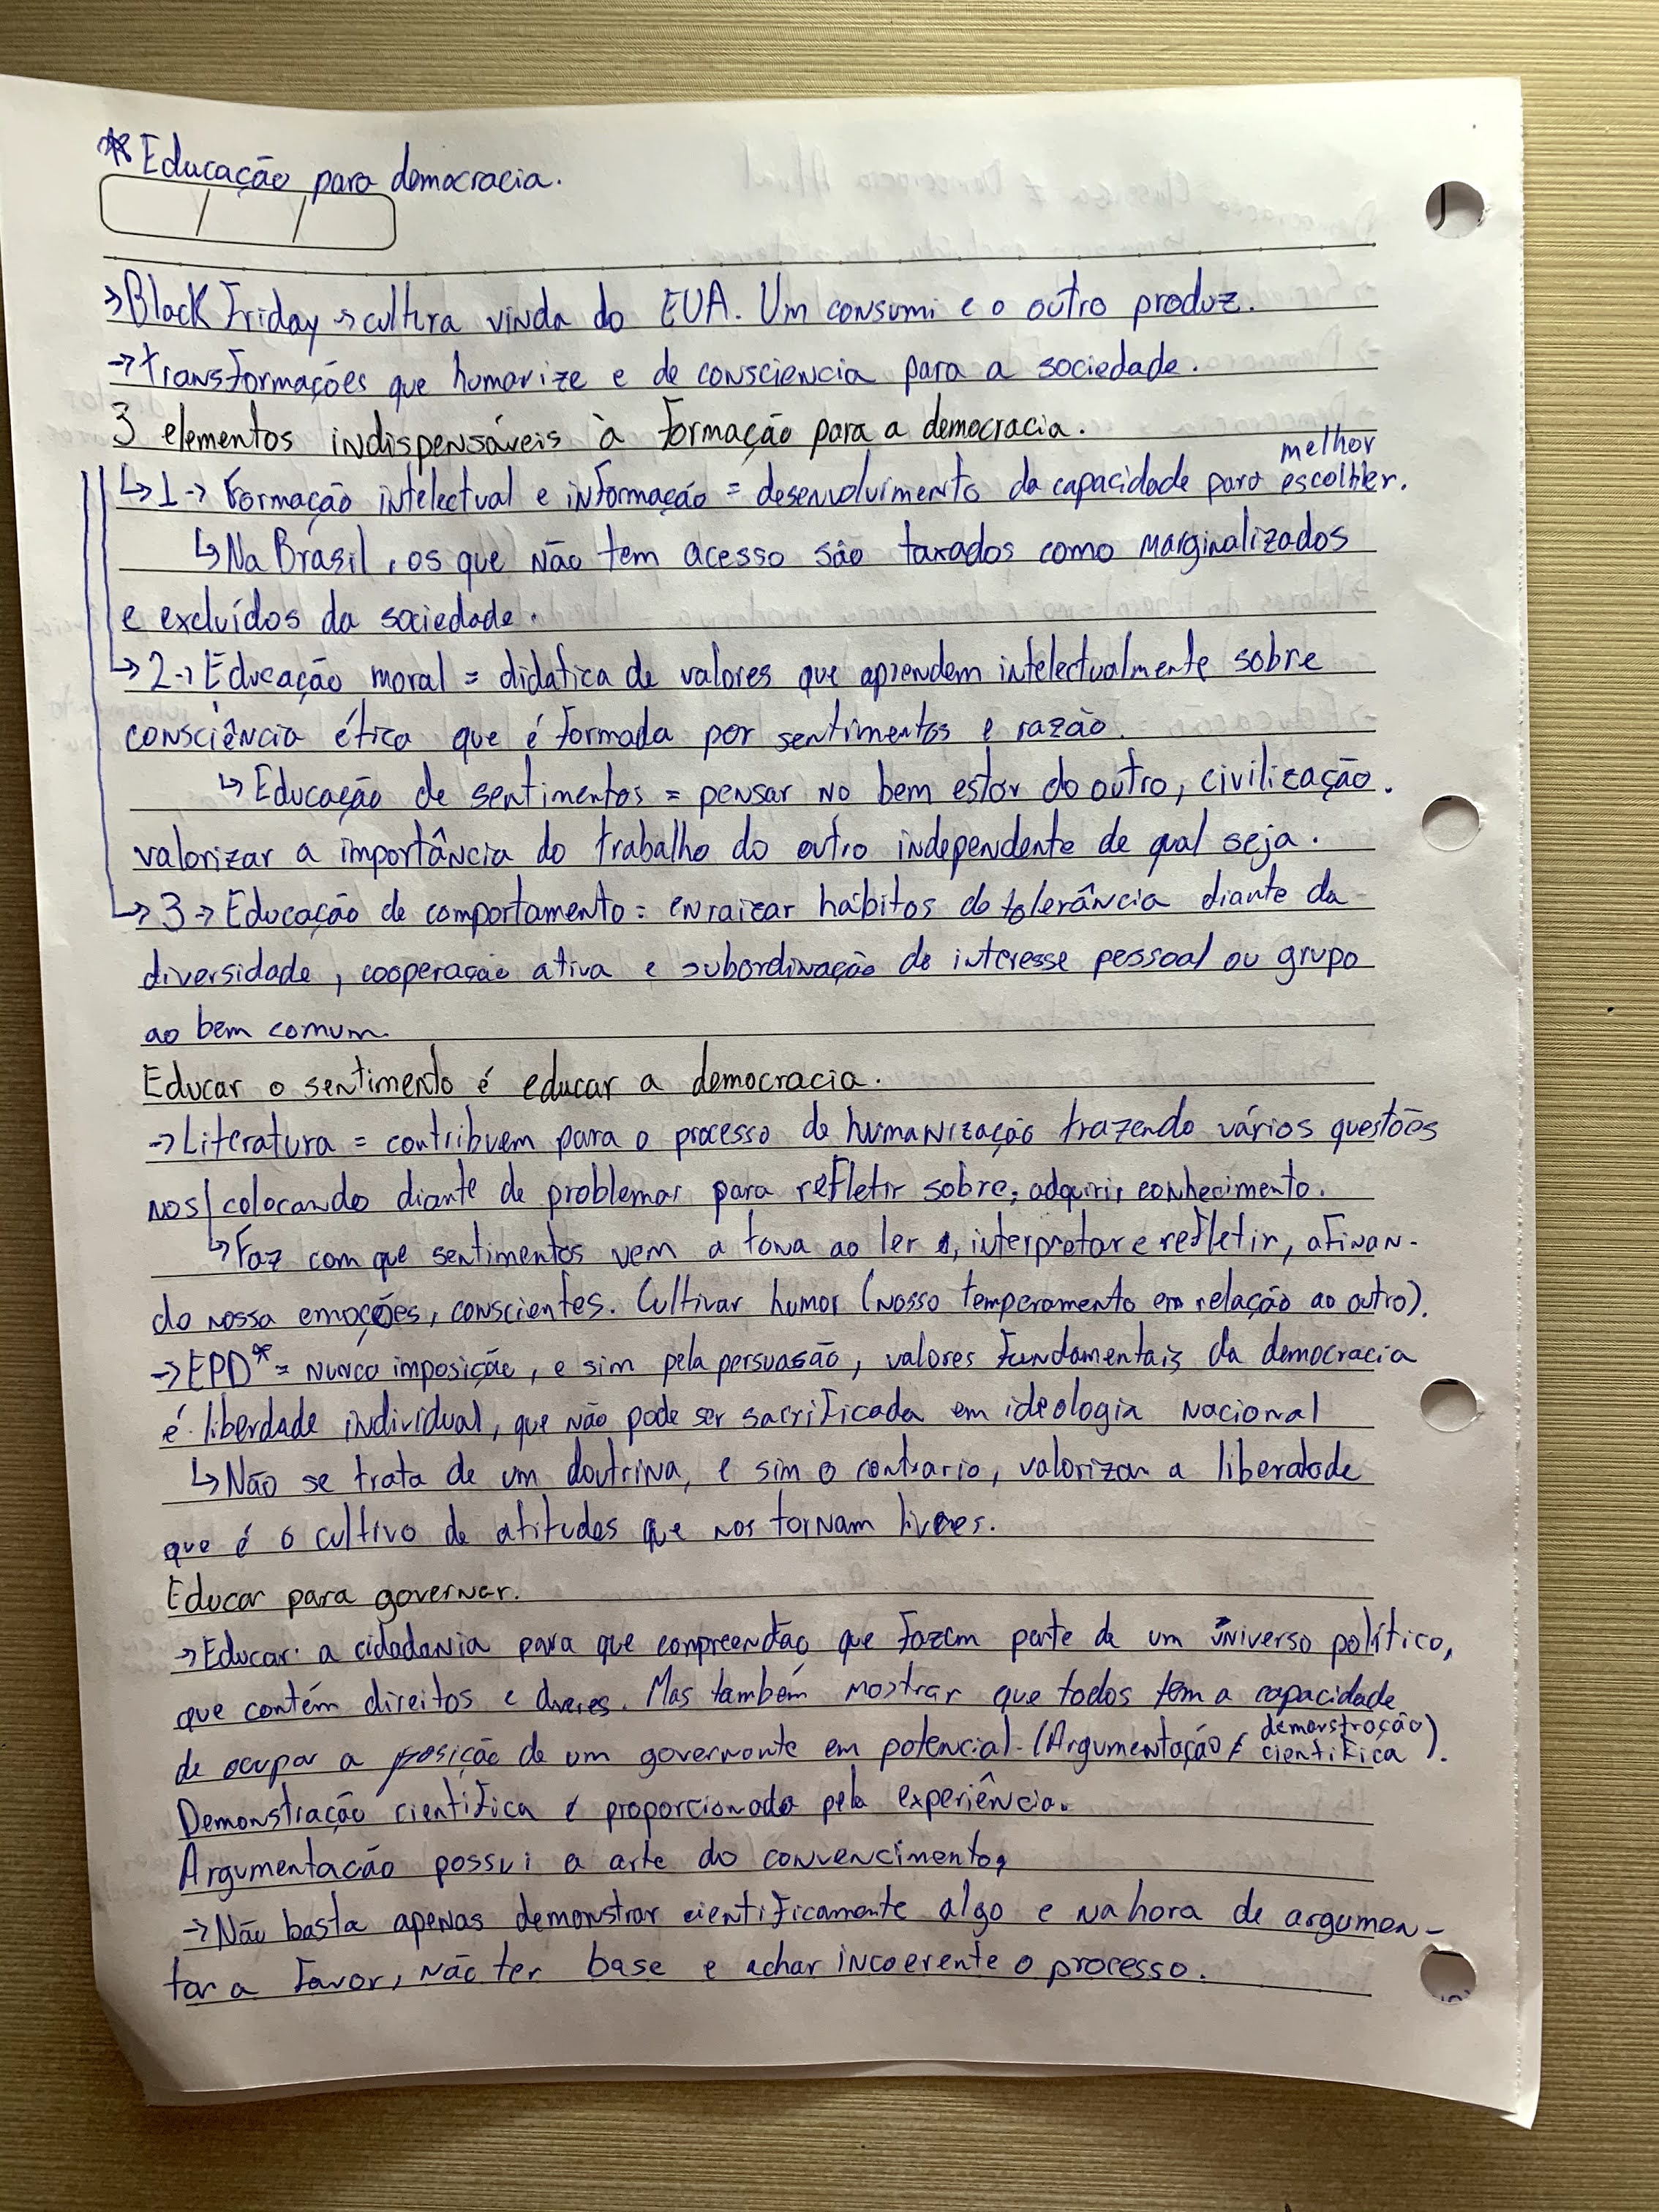 * Educação para democracia.
/ /
→ Black Friday → cultura vinda do EUA. Um consumi e o outro produz.
→ transformações que humanize e de consciencia para a sociedade.
3 elementos indispensáveis à formação para a democracia.
melhor
↳ 1 → Formação intelectual e informação = desenvolvimento da capacidade para escolher.
↳ Na Brasil, os que não tem acesso são taxados como marginalizados
e excluídos da sociedade.
↳ 2 → Educação moral = didática de valores que aprendem intelectualmente sobre
consciência ética que é formada por sentimentos e razão.
↳ Educação de sentimentos = pensar no bem estar do outro, civilização.
valorizar a importância do trabalho do outro independente de qual seja.
↳ 3 → Educação de comportamento = enraizar hábitos de tolerância diante da
diversidade, cooperação ativa e subordinação de interesse pessoal ou grupo
ao bem comum.
Educar o sentimento é educar a democracia.
→ Literatura = contribuem para o processo de humanização trazendo vários questões
nos colocando diante de problemas para refletir sobre, adquirir conhecimento.
↳ Faz com que sentimentos vem a tona ao ler, interpretar e refletir, afinan-
do nossa emoções, conscientes. Cultivar humor (nosso temperamento em relação ao outro).
→ EPD* = nunca imposição, e sim pela persuasão, valores fundamentais da democracia
é liberdade individual, que não pode ser sacrificada em ideologia nacional
↳ Não se trata de um doutrina, e sim o contrario, valorizar a liberdade
que é o cultivo de atitudes que nos tornam livres.
Educar para governar.
→ Educar a cidadania para que compreendão que fazem parte de um universo político,
que contém direitos e dveres. Mas também mostrar que todos tem a capacidade
de ocupar a posição de um governante em potencial. (Argumentação ≠ demonstração
cientifica).
Demonstração cientifica é proporcionada pela experiência.
Argumentação possui a arte do convencimento,
→ Não basta apenas demonstrar cientificamente algo e na hora de argumen-
tar a favor, não ter base e achar incoerente o processo.